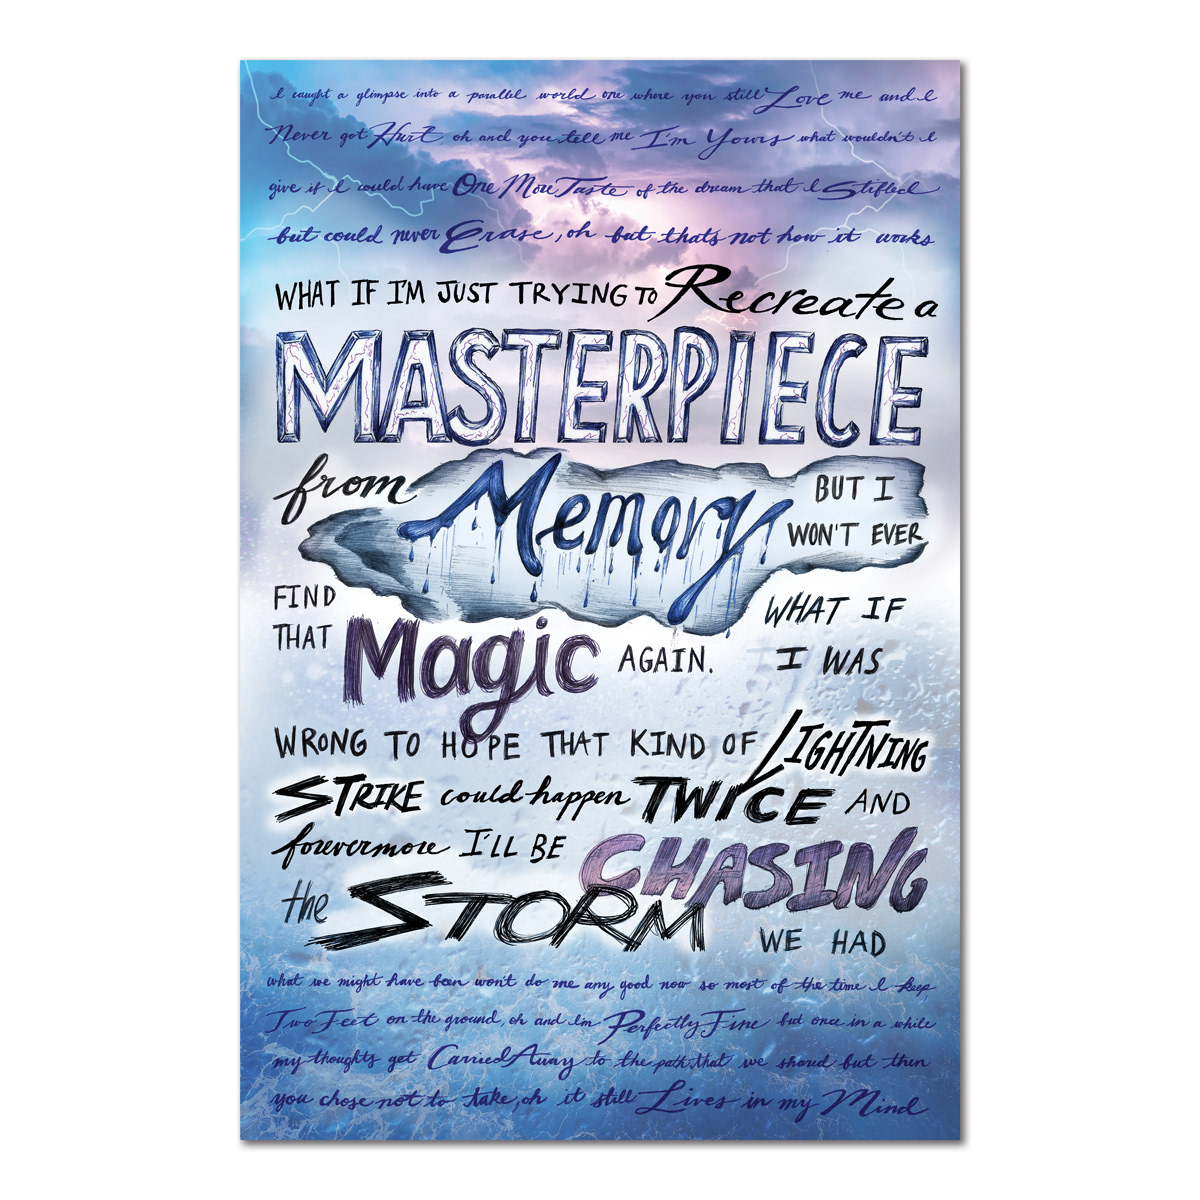 I caught a glimpse into a parallel world one where you still Love me and I
Never got Hurt, oh and you tell me I'm Yours what wouldn't I
give if I could have One More Taste of the dream that I Stifled
but could never Erase, oh but that's not how it works
WHAT IF I'M JUST TRYING TO Recreate a
MASTERPIECE
from Memory BUT I
WON'T EVER
FIND
THAT Magic AGAIN. WHAT IF
I WAS
WRONG TO HOPE THAT KIND OF LIGHTNING
STRIKE could happen TWICE AND
forevermore I'LL BE CHASING
the STORM WE HAD
what we might have been won't do me any good now so most of the time I keep
Two Feet on the ground, oh and I'm Perfectly Fine but once in a while
my thoughts get Carried Away to the path that we shared but then
you chose not to take, oh it still Lives in my Mind